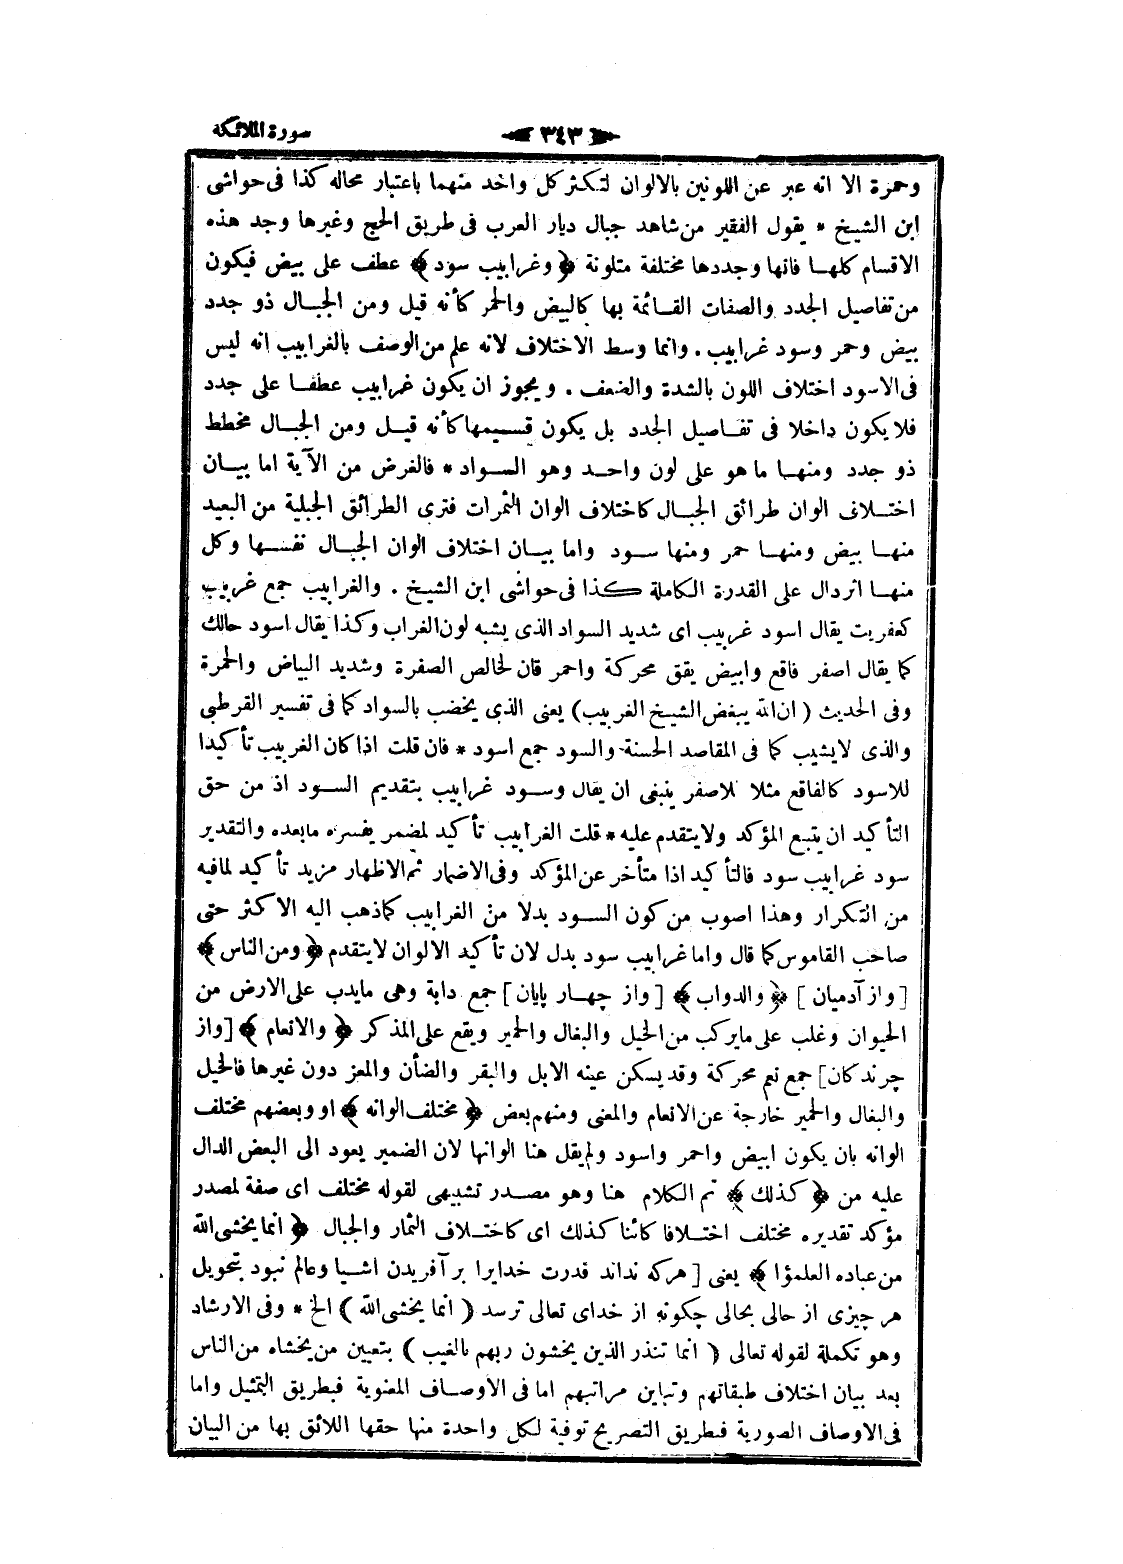 سورة الملائكة
﴿ ٣٤٣ ﴾
وحمرة الا انه عبر عن اللونين بالالوان لتكثر كل واحد منهما باعتبار محاله كذا فى حواشى
ابن الشيخ * يقول الفقير من شاهد جبال ديار العرب فى طريق الحج وغيرها وجد هذه
الاقسام كلها فانها وجددها مختلفة متلونة ﴿ وغرابيب سود ﴾ عطف على بيض فيكون
من تفاصيل الجدد والصفات القائمة بها كالبيض والحمر كأنه قيل ومن الجبال ذو جدد
بيض وحمر وسود غرابيب . وانما وسط الاختلاف لانه علم من الوصف بالغرابيب انه ليس
فى الاسود اختلاف اللون بالشدة والضعف . ويجوز ان يكون غرابيب عطفا على جدد
فلا يكون داخلا فى تفاصيل الجدد بل يكون قسيمها كأنه قيل ومن الجبال مخطط
ذو جدد ومنها ما هو على لون واحد وهو السواد * فالغرض من الآية اما بيان
اختلاف الوان طرائق الجبال كاختلاف الوان الثمرات فترى الطرائق الجبلية من البعيد
منها بيض ومنها حمر ومنها سود واما بيان اختلاف الوان الجبال نفسها وكل
منها اثر دال على القدرة الكاملة كذا فى حواشى ابن الشيخ . والغرابيب جمع غربيب
كعفريت يقال اسود غربيب اى شديد السواد الذى يشبه لون الغراب وكذا يقال اسود حالك
كما يقال اصفر فاقع وابيض يقق محركة واحمر قان لخالص الصفرة وشديد البياض والحمرة
وفى الحديث ( ان الله يبغض الشيخ الغربيب ) يعنى الذى يخضب بالسواد كما فى تفسير القرطبى
والذى لايشيب كما فى المقاصد الحسنة والسود جمع اسود * فان قلت اذا كان الغربيب تأكيدا
للاسود كالفاقع مثلا للاصفر ينبغى ان يقال وسود غرابيب بتقديم السود اذ من حق
التأكيد ان يتبع المؤكد ولا يتقدم عليه * قلت الغرابيب تأكيد لمضمر يفسره مابعده والتقدير
سود غرابيب سود فالتأكيد اذا متأخر عن المؤكد وفى الاضمار ثم الاظهار مزيد تأكيد لمافيه
من التكرار وهذا اصوب من كون السود بدلا من الغرابيب كما ذهب اليه الاكثر حتى
صاحب القاموس كما قال واما غرابيب سود بدل لان تأكيد الالوان لايتقدم ﴿ ومن الناس ﴾
[ واز آدميان ] ﴿ والدواب ﴾ [ واز چهار پايان ] جمع دابة وهى مايدب على الارض من
الحيوان وغلب على مايركب من الخيل والبغال والحمير ويقع على المذكر ﴿ والانعام ﴾ [ واز
چرندكان ] جمع نعم محركة وقد يسكن عينه الابل والبقر والضأن والمعز دون غيرها فالخيل
والبغال والحمير خارجة عن الانعام والمعنى ومنهم بعض ﴿ مختلف الوانه ﴾ او وبعضهم مختلف
الوانه بان يكون ابيض واحمر واسود ولم يقل هنا الوانها لان الضمير يعود الى البعض الدال
عليه من ﴿ كذلك ﴾ تم الكلام هنا وهو مصدر تشبيهى لقوله مختلف اى صفة لمصدر
مؤكد تقديره مختلف اختلافا كائنا كذلك اى كاختلاف الثمار والجبال ﴿ انما يخشى الله
من عباده العلمؤا ﴾ يعنى [ هركه نداند قدرت خدايرا بر آفريدن اشيا وعالم نبود بتحويل
هر چيزى از حالى بحالى چكونه از خداى تعالى ترسد ( انما يخشى الله ) الخ * وفى الارشاد
وهو تكملة لقوله تعالى ( انما تنذر الذين يخشون ربهم بالغيب ) بتعيين من يخشاه من الناس
بعد بيان اختلاف طبقاتهم وتباين مراتبهم اما فى الاوصاف المعنوية فبطريق التمثيل واما
فى الاوصاف الصورية فبطريق التصريح توفية لكل واحدة منها حقها اللائق بها من البيان